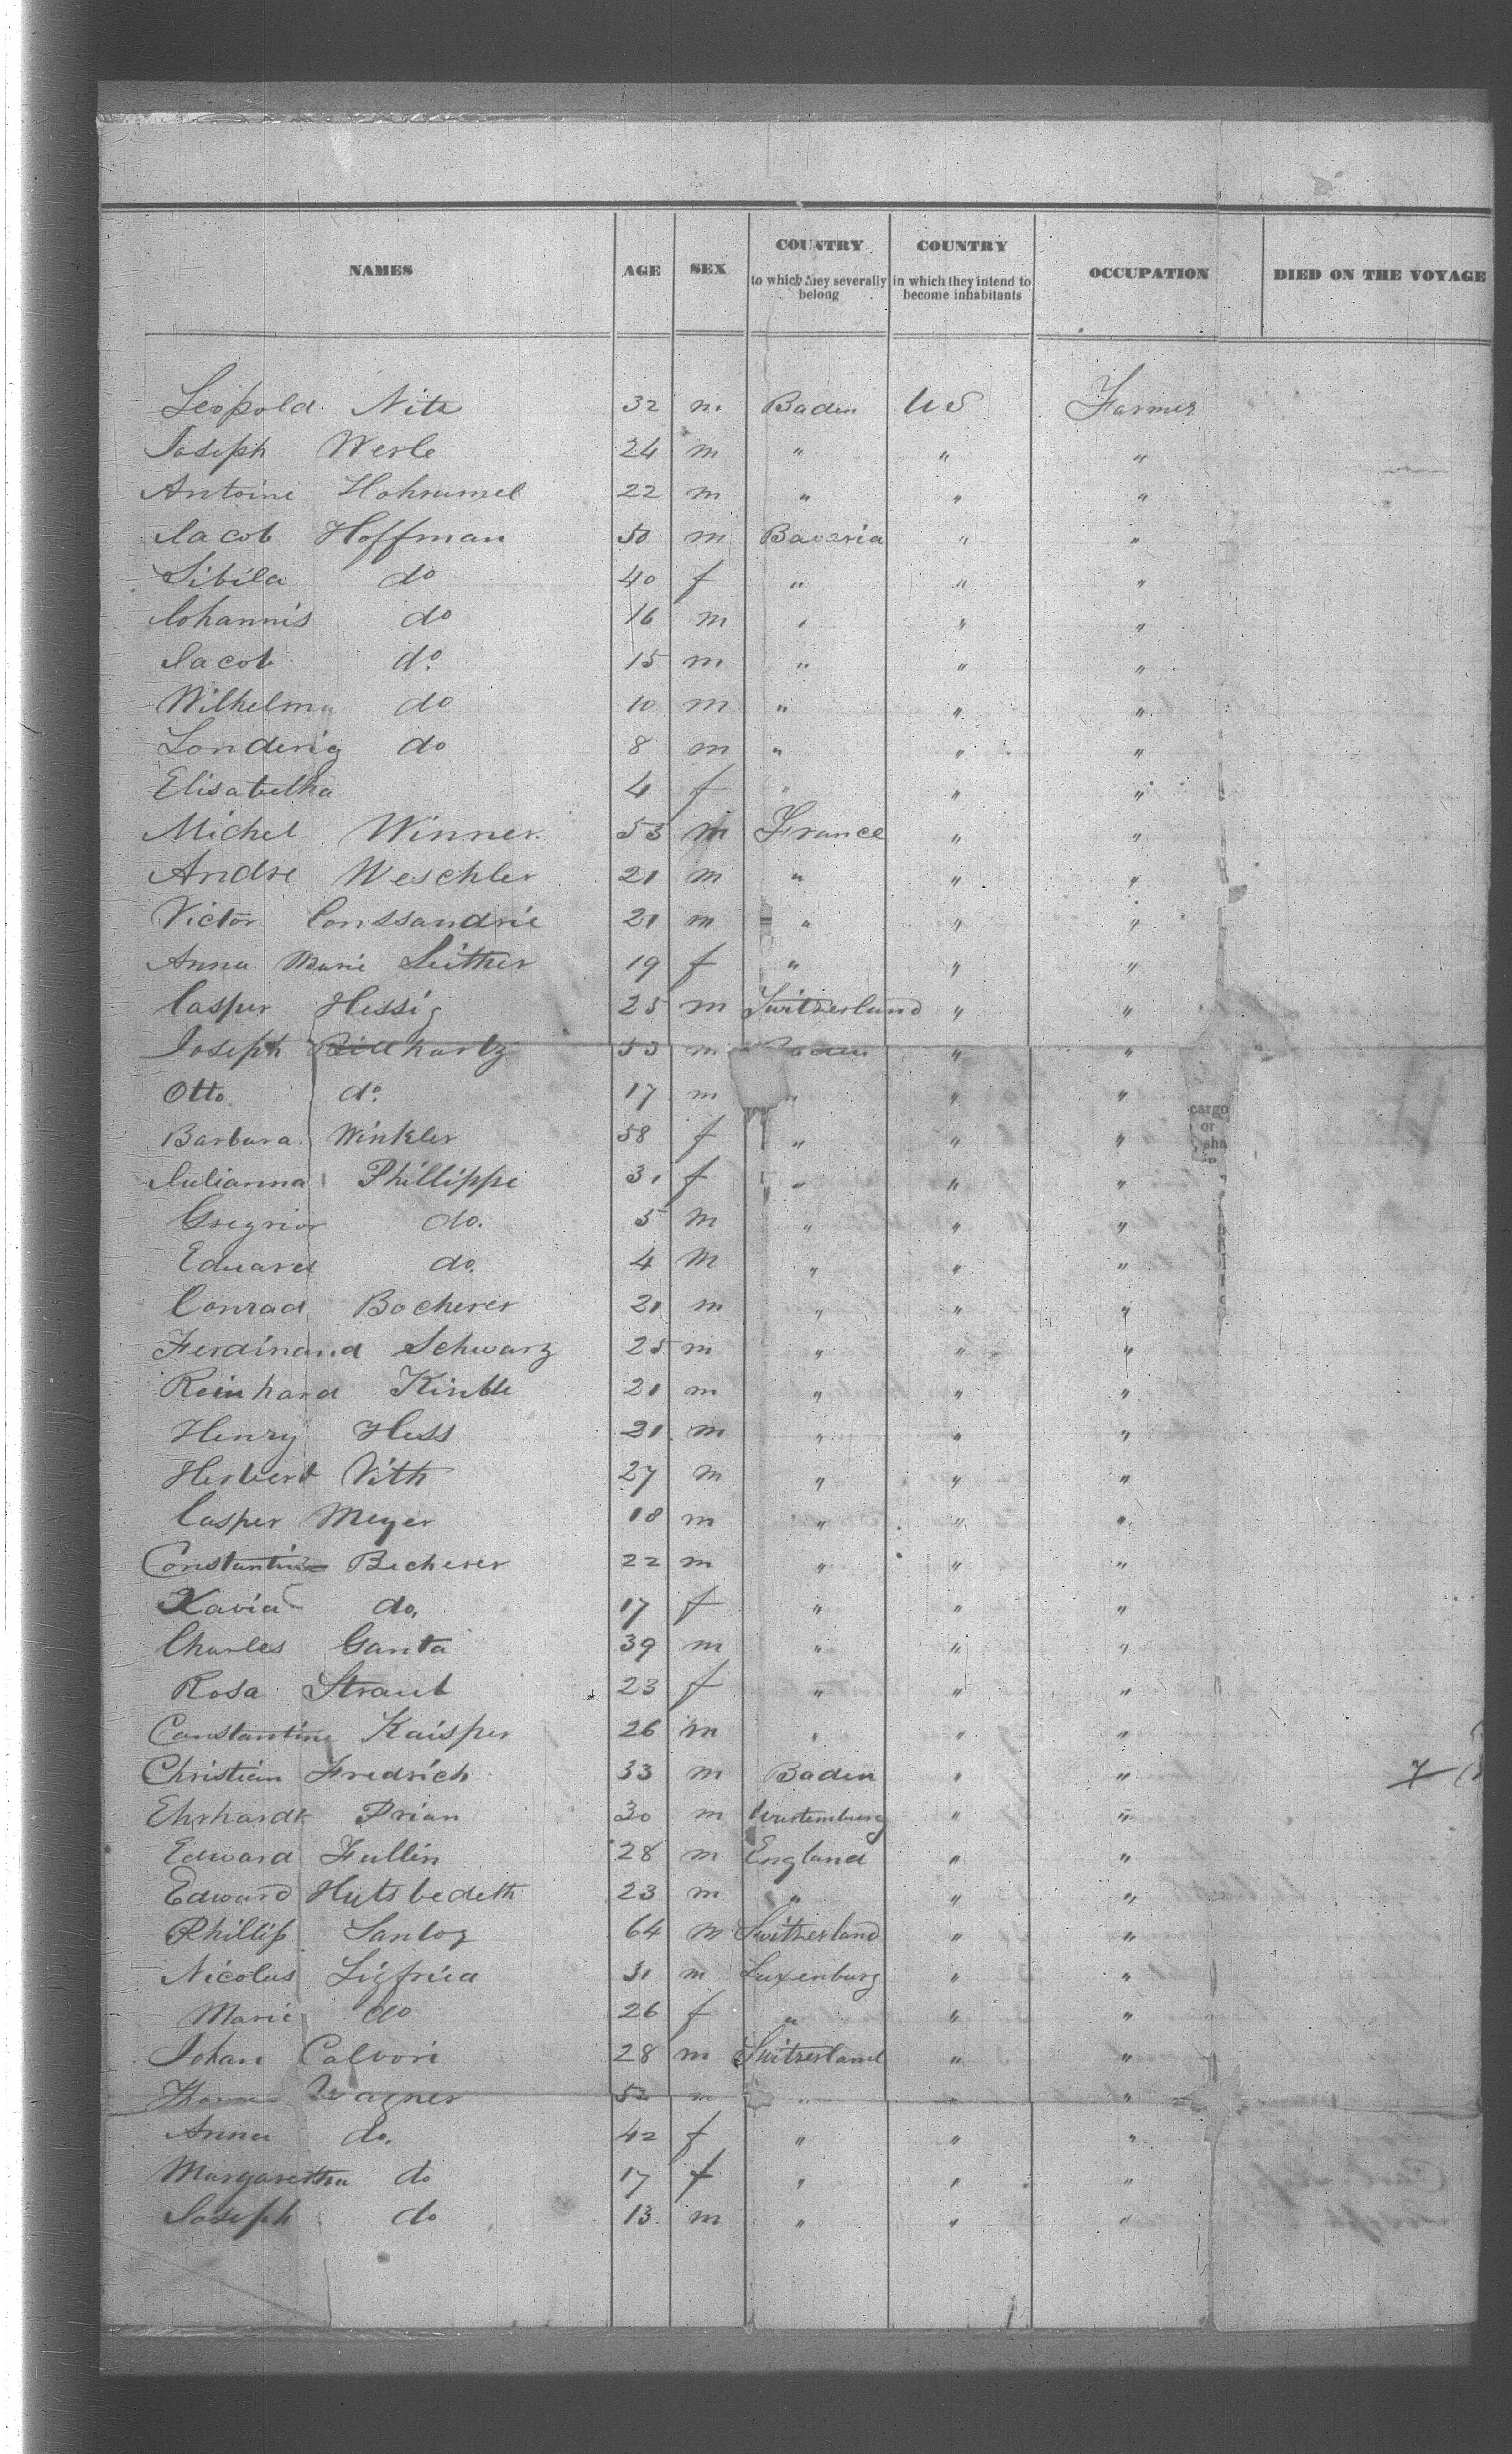 NAMES AGE SEX COUNTRY to which they severally belong COUNTRY in which they intend to become inhabitants OCCUPATION DIED ON THE VOYAGE
Leopold Nitz 32 m. Baden US Farmer
Joseph Werle 24 m " " "
Antoine Hohrumel 22 m " " "
Jacob Hoffman 50 m Bavaria " "
Sibila do 40 f " " "
Johannis do 16 m " " "
Jacob do 15 m " " "
Wilhelm do 10 m " " "
Londerig do 8 m " " "
Elisabetha 4 f " " "
Michel Winner. 53 m France " "
Andre Weschler 21 m " " "
Victor Conssandrie 21 m " " "
Anna Marie Leither 19 f " " "
Casper Hessig 25 m Switzerland " "
Joseph 53 m Baden " "
Otto do. 17 m " " "
Barbara Winkler 58 f " " "
cargo
or
sha
Julianna Phillippe 31 f " " "
Gregrior do. 5 m " " "
Eduard do. 4 m " " "
Conrad Bocherer 21 m " " "
Ferdinand Schwarz 25 m " " "
Reinhard Kinble 21 m " " "
Henry Hess 21 m " " "
Herbert Vith 27 m " " "
Casper Meyer 18 m " " "
Constantine Becherer 22 m " " "
Xavia do. 17 f " " "
Charles Ganta 39 m " " "
Rosa Straub 23 f " " "
Constantine Kaisper 26 m " " "
Christian Fredrich 33 m Baden " " 7
Ehrhardt Prian 30 m Wurtemburg " "
Edward Fullin 28 m England " "
Edward Hutsbedeth 23 m " " "
Phillip Santoz 64 m Switzerland " "
Nicolus Sigfried 31 m Luxenburg " "
Marie do 26 f " " "
Johan Calvori 28 m Switzerland " "
Wagner 52 m " " "
Anna do. 42 f " " "
Margaretha do 17 f " " "
Joseph do 13 m " " "